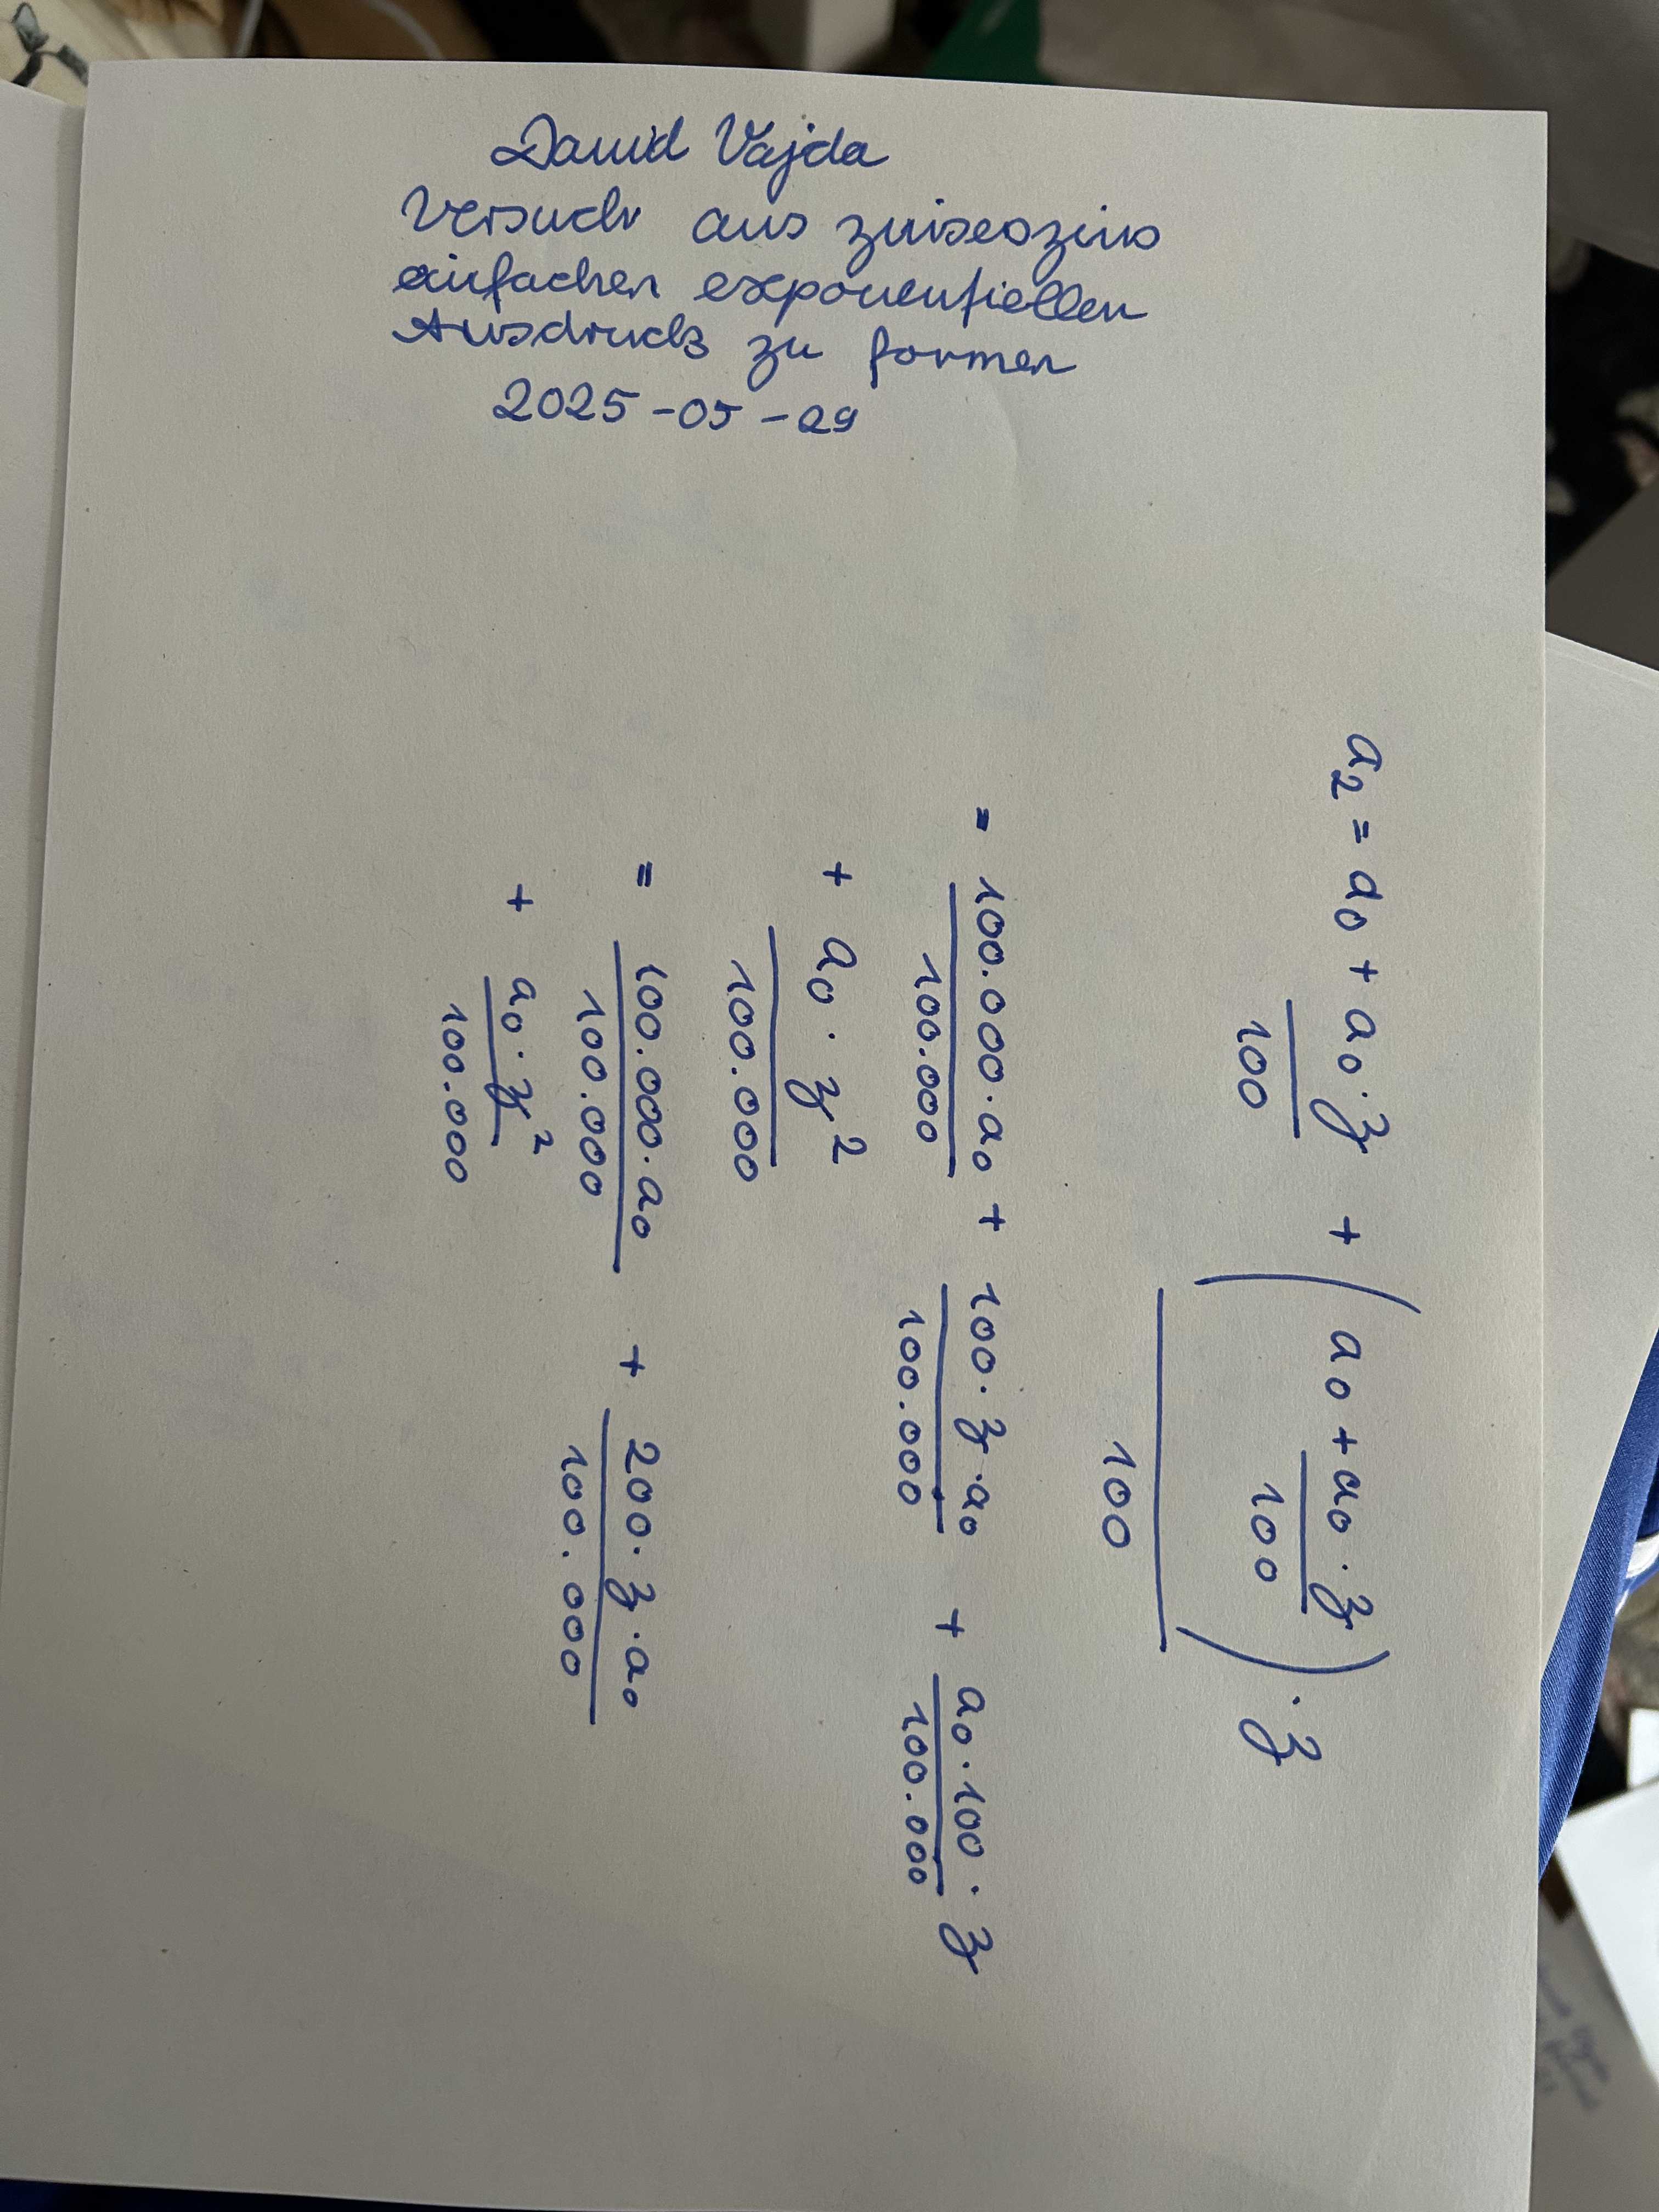 David Vajda
Versuch aus zinseszins
einfachen exponentiellen
Ausdruck zu formen
2025-05-29
a₂ = a₀ + a₀·z/100 + (a₀ + a₀·z/100)·z/100
= 100.000·a₀/100.000 + 100·z·a₀/100.000 + a₀·100·z/100.000
+ a₀·z²/100.000
= 100.000·a₀/100.000 + 200·z·a₀/100.000
+ a₀·z²/100.000